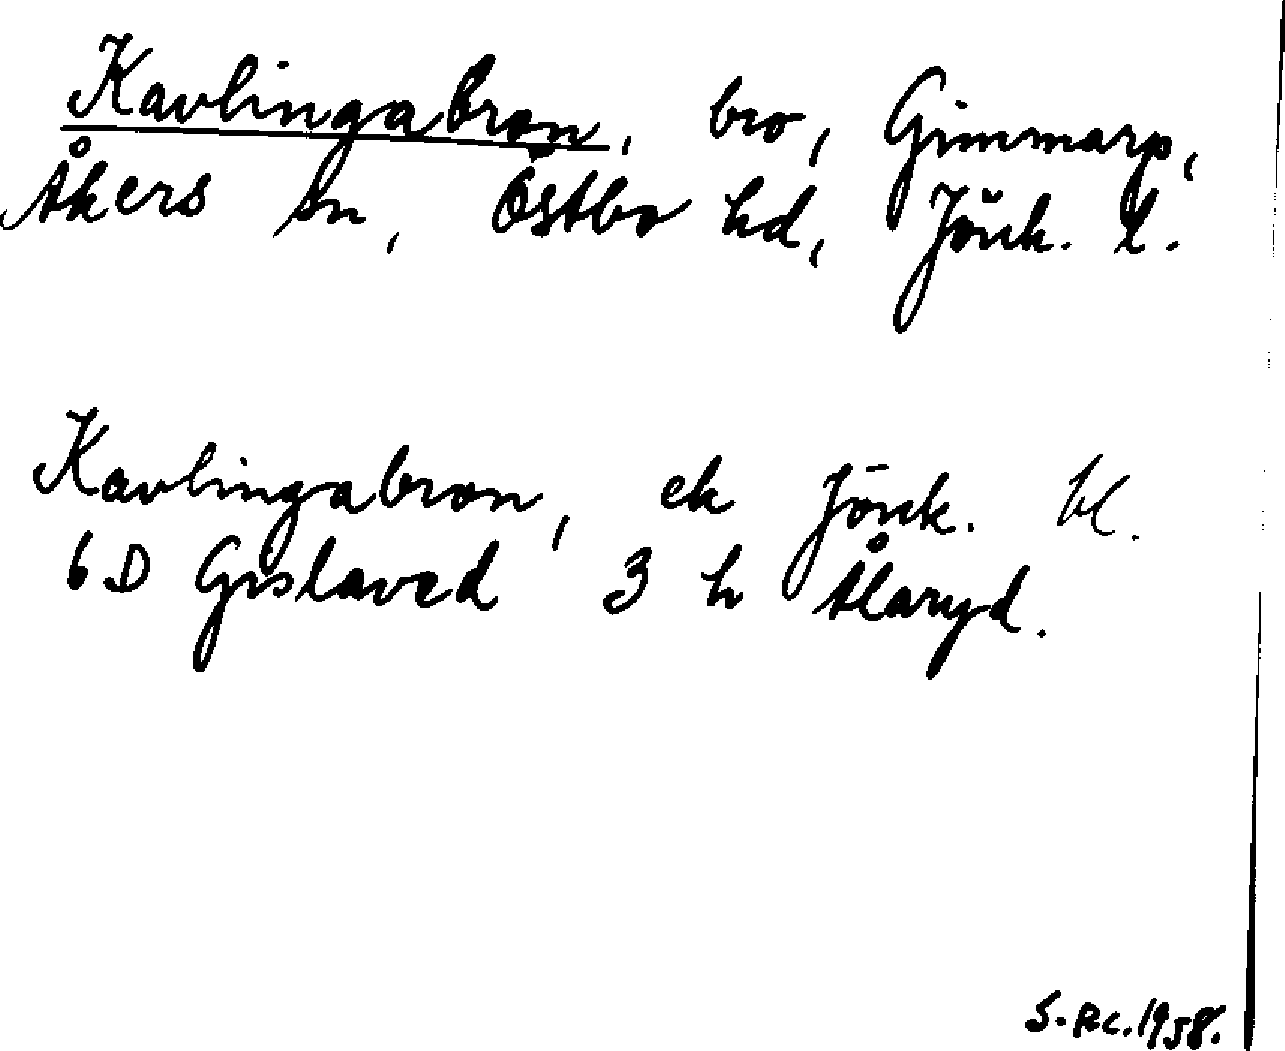 Kavlingabron, bro, Gimmarp,
Åkers sn, Östbo hd, Jönk. l.
Kavlingabron, ek Jönk. bl.
6D Gislaved 3 h Ålaryd.
S-RC. 1958.